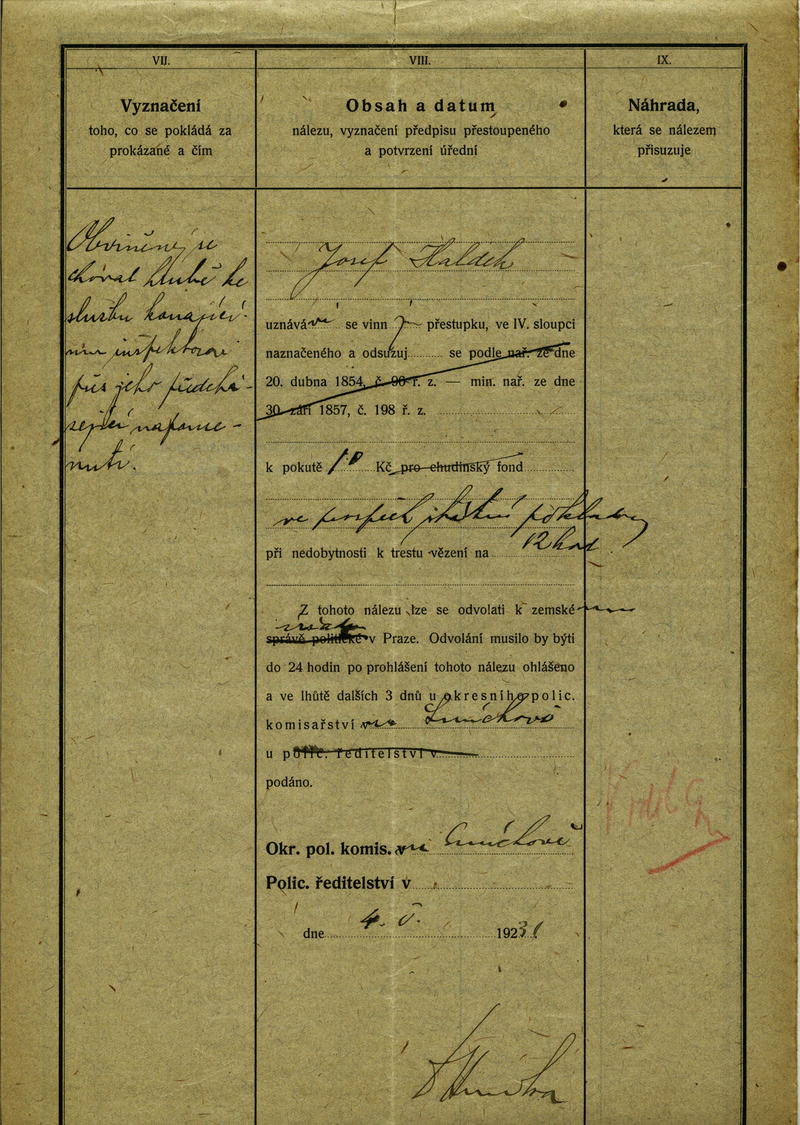 VII.
Vyznačení
toho, co se pokládá za
prokázané a čím
Obviněný se
choval hrubě ke
službu konající-
mu inspektorovi
přes jeho předchá-
zející napome-
nutí.
VIII.
Obsah a datum
nálezu, vyznačení předpisu přestoupeného
a potvrzení úřední
Josef
uznává se vinn ý přestupku, ve IV. sloupci
naznačeného a odsuzuj se podle nař. ze dne
20. dubna 1854, č. 96 ř. z. — min. nař. ze dne
30. září 1857, č. 198 ř. z.
k pokutě 10 Kč pro chudinský fond
ve prospěch státní pokladny
při nedobytnosti k trestu vězení na 12 hod
Z tohoto nálezu lze se odvolati k zemské
správě politické v Praze. Odvolání musilo by býti
do 24 hodin po prohlášení tohoto nálezu ohlášeno
a ve lhůtě dalších 3 dnů u okresního polic.
komisařství na Smíchově
u polic. ředitelství v
podáno.
Okr. pol. komis. na Smíchově
Polic. ředitelství v
dne 4. 192 31
IX.
Náhrada,
která se nálezem
přisuzuje